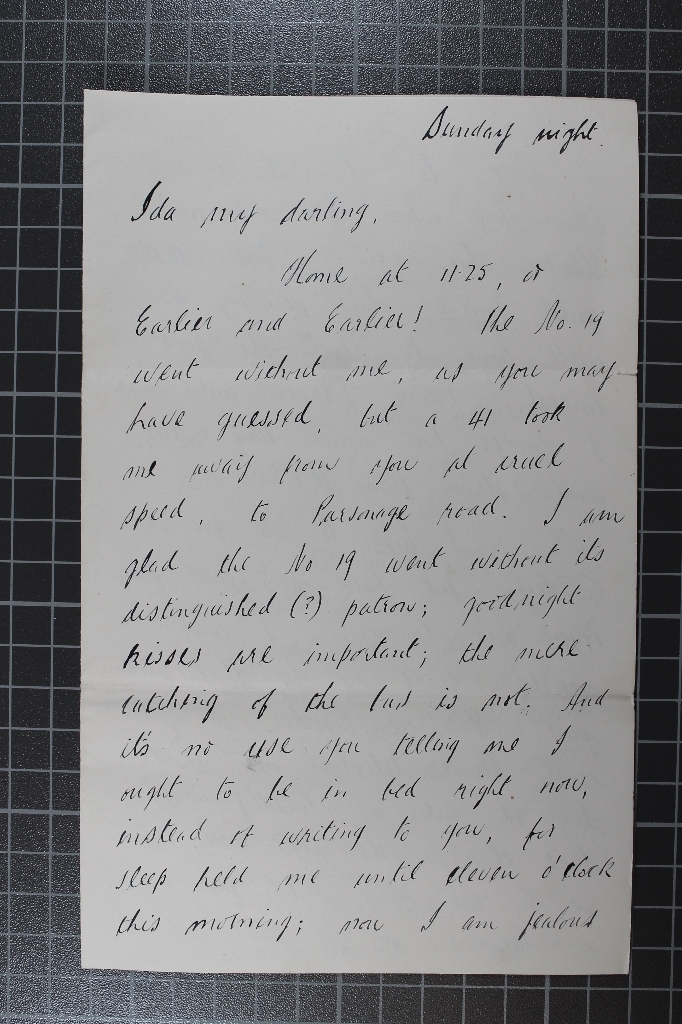 Sunday night.
Ida my darling,
Home at 11.25, or
Earlier and Earlier! The No. 19
went without me, as you may
have guessed, but a 41 took
me away from you at cruel
speed, to Parsonage road. I am
glad the No 19 went without its
distinguished (?) patron; goodnight
kisses are important; the mere
catching of the bus is not. And
it's no use you telling me I
ought to be in bed right now,
instead of writing to you, for
sleep held me until eleven o'clock
this morning; now I am jealous